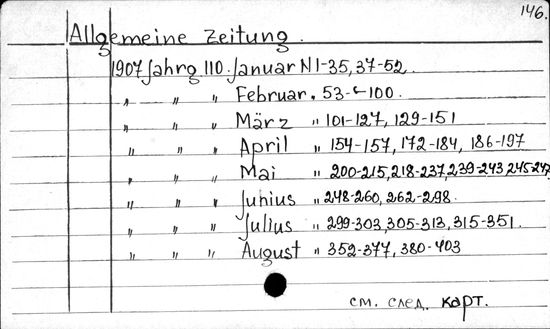 146.
Allgemeine Zeitung.
1907 Jahrg. 110. Januar N 1-35, 37-52.
" " " Februar. 53-100.
" " " März " 101-127, 129-151
" " " April " 154-157, 172-184, 186-197
" " " Mai " 200-215, 218-237, 239-243, 245-247
" " " Junius " 248-260, 262-298.
" " " Julius " 299-303, 305-313, 315-351.
" " " August " 352-377, 380-403
см. след. карт.